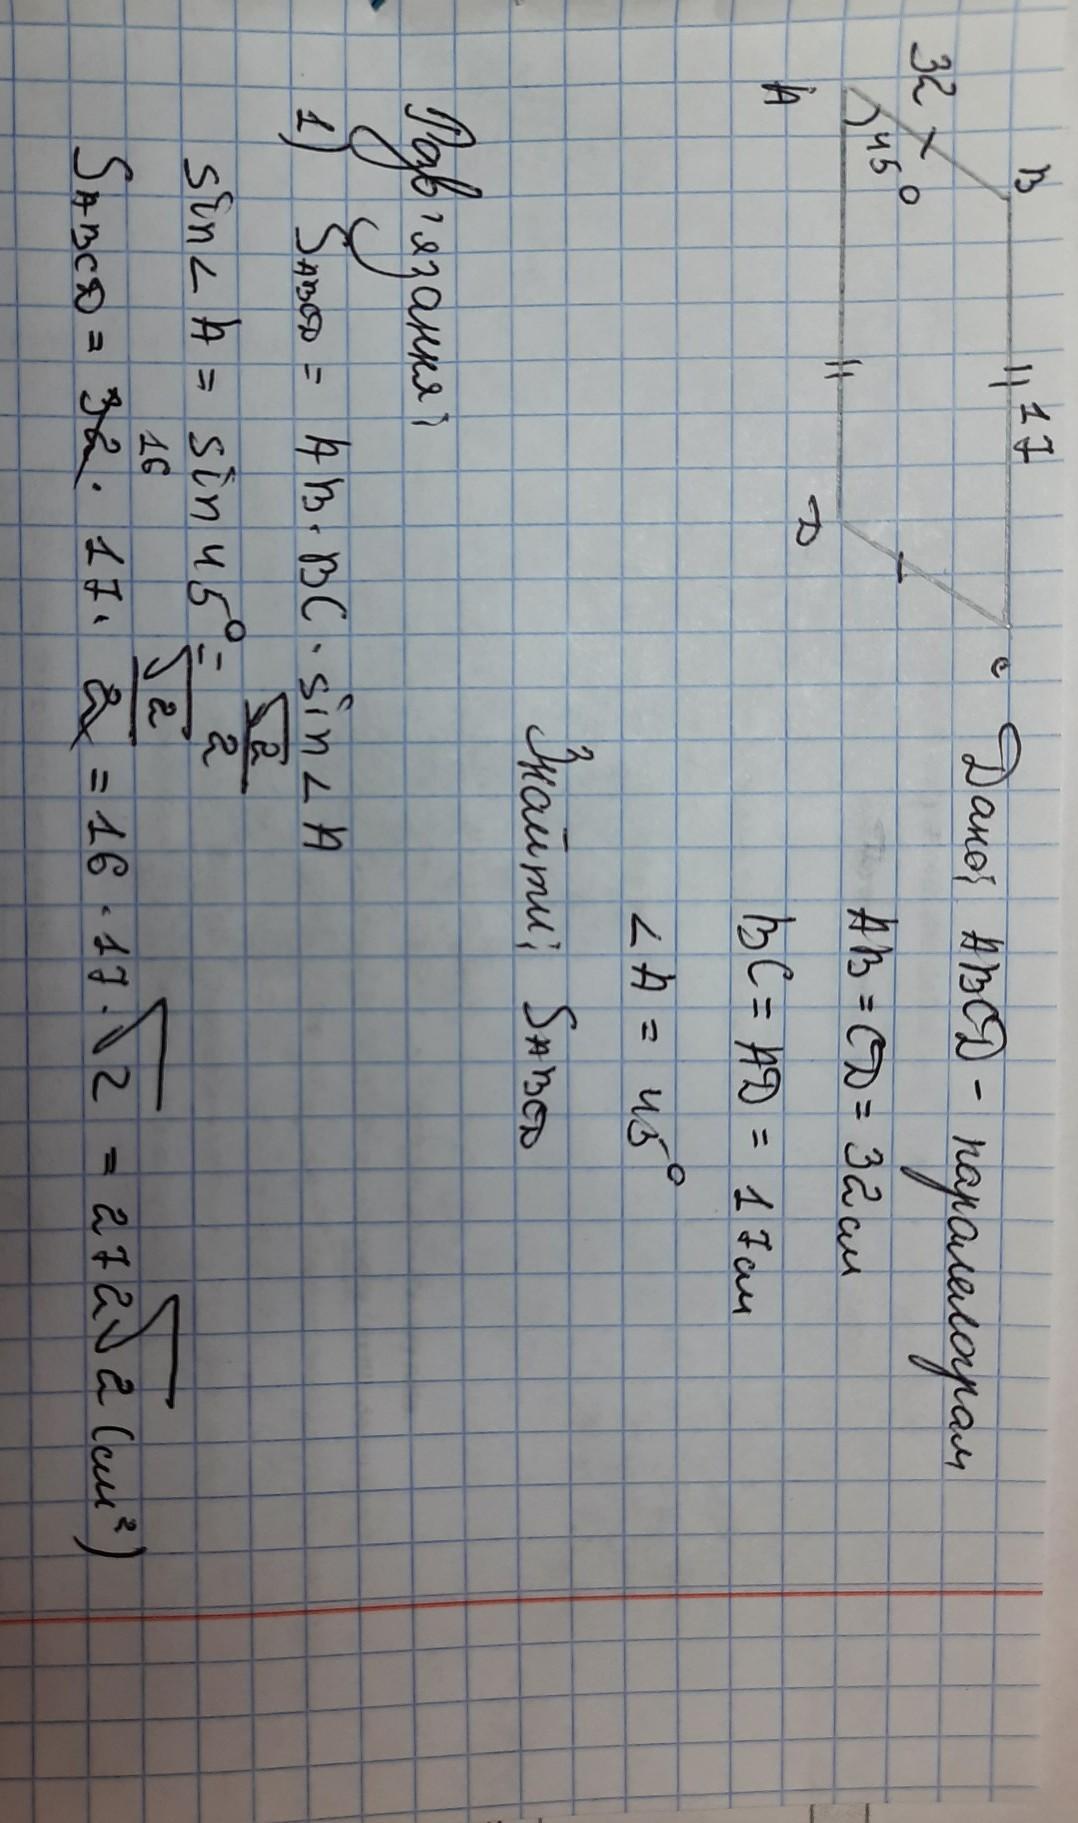 B 17 C
32 45°
A D
Дано: ABCD - паралелограм
AB = CD = 32 см
BC = AD = 17 см
∠A = 45°
Знайти: SABCD
Розв'язання:
1) SABCD = AB · BC · sin∠A
sin∠A = sin 45° = √2/2
SABCD = 32 · 17 · √2/2 = 16 · 17 · √2 = 272√2 (см²)
16